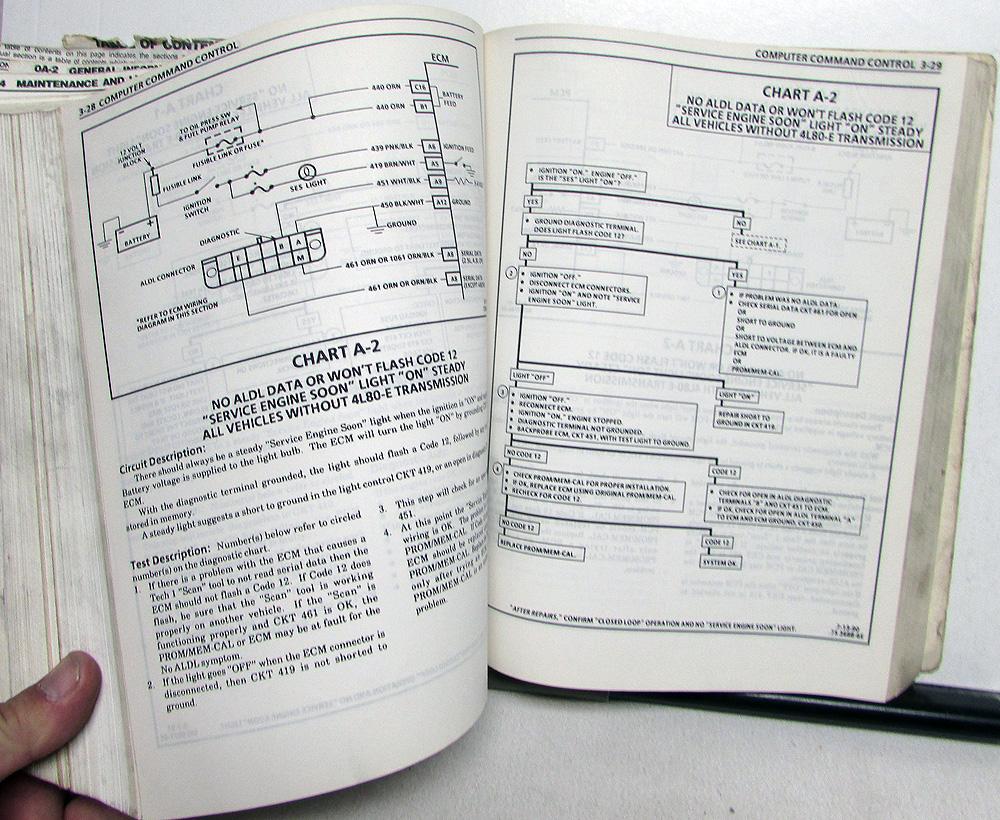 TABLE OF CONTENTS
table of contents on this page indicates the sections
0A-2 GENERAL INFORM
MAINTENANCE AND
3-28 COMPUTER COMMAND CONTROL
ECM
440 ORN
C16
440 ORN
B1
BATTERY
FEED
TO OIL PRESS SW
& FUEL PUMP RELAY
12 VOLT
JUNCTION
BLOCK
FUSIBLE LINK OR FUSE*
439 PNK/BLK
A6
IGNITION FEED
FUSIBLE LINK
419 BRN/WHT
A5
SES LIGHT
IGNITION
SWITCH
451 WHT/BLK
A9
450 BLK/WHT
A12
GROUND
BATTERY
DIAGNOSTIC
GROUND
B
A
E
M
ALDL CONNECTOR
461 ORN OR 1061 ORN/BLK
A8
SERIAL DATA
461 ORN OR ORN/BLK
A8
SERIAL DATA
*REFER TO ECM WIRING
DIAGRAM IN THIS SECTION
CHART A-2
NO ALDL DATA OR WON'T FLASH CODE 12
"SERVICE ENGINE SOON" LIGHT "ON" STEADY
ALL VEHICLES WITHOUT 4L80-E TRANSMISSION
Circuit Description:
There should always be a steady "Service Engine Soon" light when the ignition is "ON" and
Battery voltage is supplied to the light bulb. The ECM will turn the light "ON" by grounding
ECM.
With the diagnostic terminal grounded, the light should flash a Code 12, followed by
stored in memory.
A steady light suggests a short to ground in the light control CKT 419, or an open in
Test Description: Number(s) below refer to circled
number(s) on the diagnostic chart.
1. If there is a problem with the ECM that causes a
Tech 1 "Scan" tool to not read serial data then the
ECM should not flash a Code 12. If Code 12 does
flash, be sure that the "Scan" tool is working
properly on another vehicle. If the "Scan" is
functioning properly and CKT 461 is OK, the
PROM/MEM-CAL or ECM may be at fault for the
No ALDL symptom.
2. If the light goes "OFF" when the ECM connector is
disconnected, then CKT 419 is not shorted to
ground.
3. This step will check for an
451.
4. At this point the "Service
wiring is OK. The
PROM/MEM-CAL. If Code
ECM should be
PROM/MEM-CAL.
only after trying
PROM/MEM-CAL
problem.
COMPUTER COMMAND CONTROL 3-29
CHART A-2
NO ALDL DATA OR WON'T FLASH CODE 12
"SERVICE ENGINE SOON" LIGHT "ON" STEADY
ALL VEHICLES WITHOUT 4L80-E TRANSMISSION
• IGNITION "ON," ENGINE "OFF".
IS THE "SES" LIGHT "ON"?
YES
NO
• GROUND DIAGNOSTIC TERMINAL.
DOES LIGHT FLASH CODE 12?
SEE CHART A-1.
NO
YES
2
• IGNITION "OFF."
• DISCONNECT ECM CONNECTORS.
• IGNITION "ON" AND NOTE "SERVICE
ENGINE SOON" LIGHT.
1
• IF PROBLEM WAS NO ALDL DATA:
• CHECK SERIAL DATA CKT 461 FOR OPEN
OR
SHORT TO GROUND
OR
SHORT TO VOLTAGE BETWEEN ECM AND
ALDL CONNECTOR. IF OK, IT IS A FAULTY
ECM
OR
PROM/MEM-CAL.
LIGHT "OFF"
LIGHT "ON"
3
• IGNITION "OFF."
• RECONNECT ECM.
• IGNITION "ON," ENGINE STOPPED.
• DIAGNOSTIC TERMINAL NOT GROUNDED.
• BACKPROBE ECM, CKT 451, WITH TEST LIGHT TO GROUND.
REPAIR SHORT TO
GROUND IN CKT 419.
NO CODE 12
CODE 12
4
• CHECK PROM/MEM-CAL FOR PROPER INSTALLATION.
• IF OK, REPLACE ECM USING ORIGINAL PROM/MEM-CAL.
• RECHECK FOR CODE 12.
• CHECK FOR OPEN IN ALDL DIAGNOSTIC
TERMINALS "B" AND CKT 451 TO ECM.
• IF OK, CHECK FOR OPEN IN ALDL TERMINAL "A"
TO ECM AND ECM GROUND, CKT 450.
NO CODE 12
CODE 12
REPLACE PROM/MEM-CAL.
SYSTEM OK.
"AFTER REPAIRS," CONFIRM "CLOSED LOOP" OPERATION AND NO "SERVICE ENGINE SOON" LIGHT.